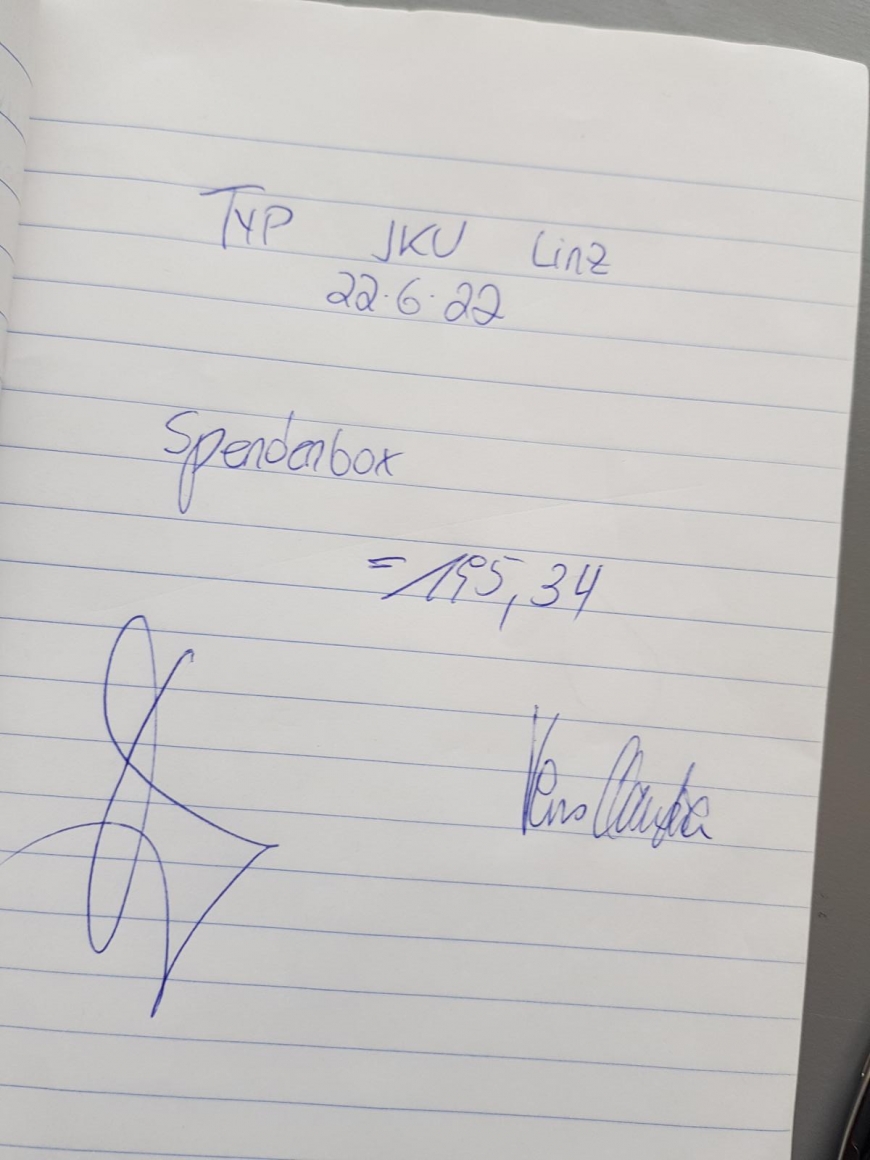 TYP JKU Linz
22.6.22
Spendenbox
= 195,34